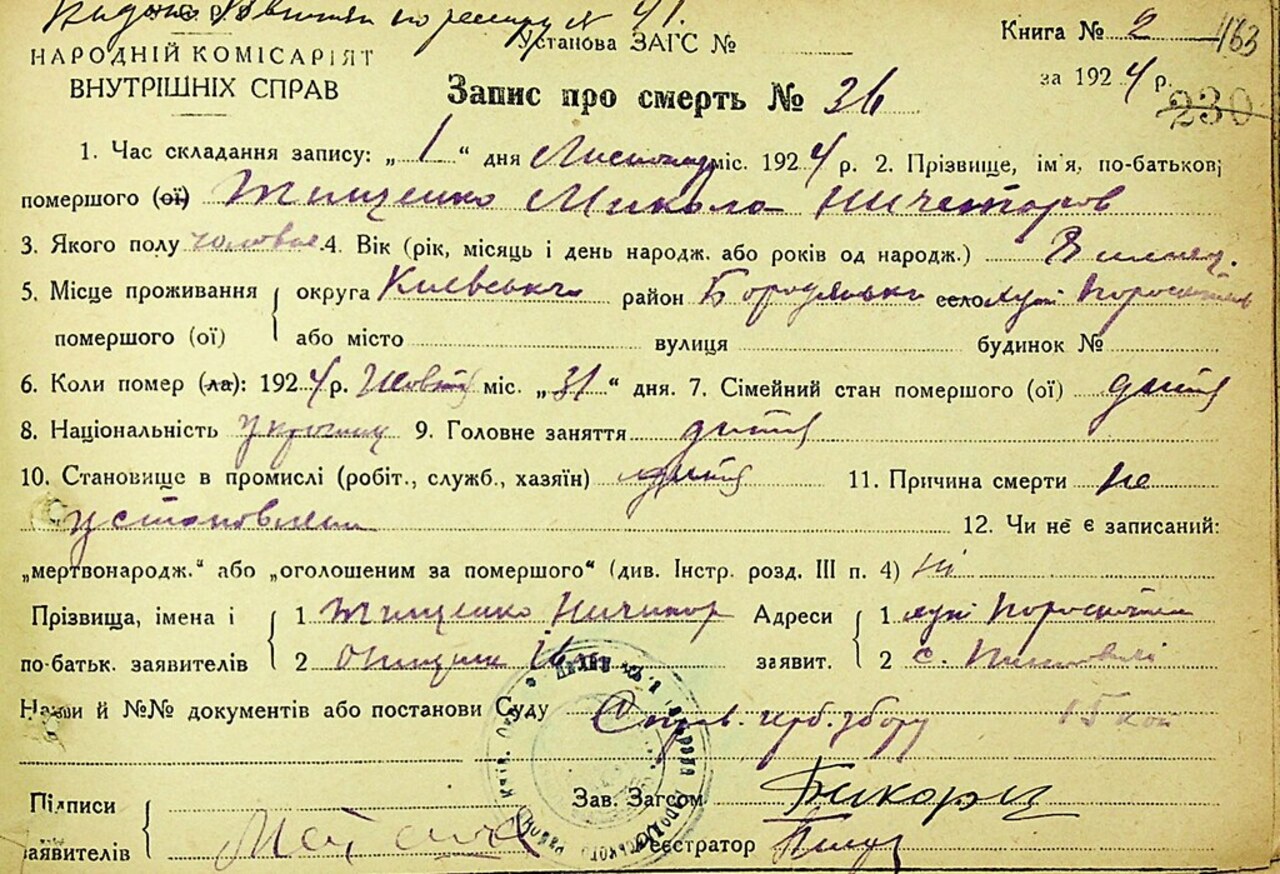 по реєстру № 41.
У.С.Р.Р.
НАРОДНІЙ КОМІСАРІЯТ
ВНУТРІШНІХ СПРАВ
Установа ЗАГС №
Книга № 2
163
за 1924 р.
230
Запис про смерть № 36
1. Час складання запису: „1“ дня Листопад міс. 1924 р. 2. Прізвище, ім'я, по-батькові
помершого (ої) Тищенко Микола Ничепоров
3. Якого полу чоловіч. 4. Вік (рік, місяць і день народж. або років од народж.)
5. Місце проживання округа Київська район Бородянськ село хут
помершого (ої) або місто вулиця будинок №
6. Коли помер (ла): 1924 р. Жовтня міс. „31“ дня. 7. Сімейний стан помершого (ої) дитя
8. Національність українец 9. Головне заняття дитя
10. Становище в промислі (робіт., служб., хазяїн) дитя 11. Причина смерти не
установлена
12. Чи не є записаний:
„мертвонародж.“ або „оголошеним за помершого“ (див. Інстр. розд. III п. 4) ні
Прізвища, імена і 1 Тищенко Ничипор Адреси 1 хут
по-батьк. заявителів 2 заявит. 2 с.
Назви й №№ документів або постанови Суду Справ. герб. збору 15 коп
Підписи Зав. Загсом
заявителів Реєстратор